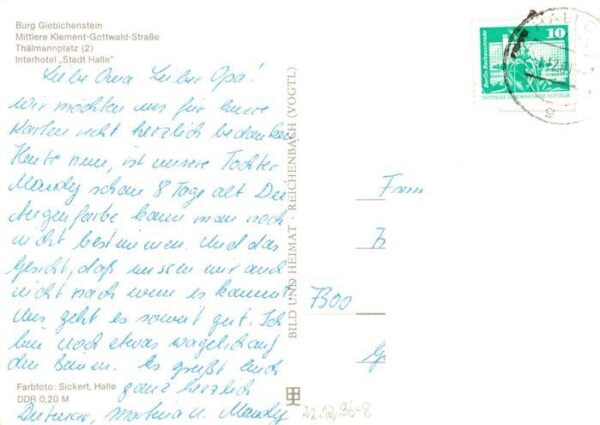 Burg Giebichenstein
Mittlere Klement-Gottwald-Straße
Thälmannplatz (2)
Interhotel „Stadt Halle"
Liebe Oma Lieber Opa!
Wir möchten uns für Eure
Karten recht herzlich bedanken
Heute nun, ist unsere Tochter
Mandy schon 8 Tage alt. Die
Augenfarbe kann man noch
nicht bestimmen. Und das
Gesicht, daß wissen wir auch
nicht nach wem es kommt
Uns geht es soweit gut. Ich
bin noch etwas wagelich auf
den Beinen. Es grüßt Euch
ganz herzlich
Martina u. Mandy
Farbfoto: Sickert, Halle
DDR 0,20 M
BILD UND HEIMAT REICHENBACH (VOGTL)
10
Berlin, Rathausstraße
DEUTSCHE DEMOKRATISCHE REPUBLIK
Frau
7300